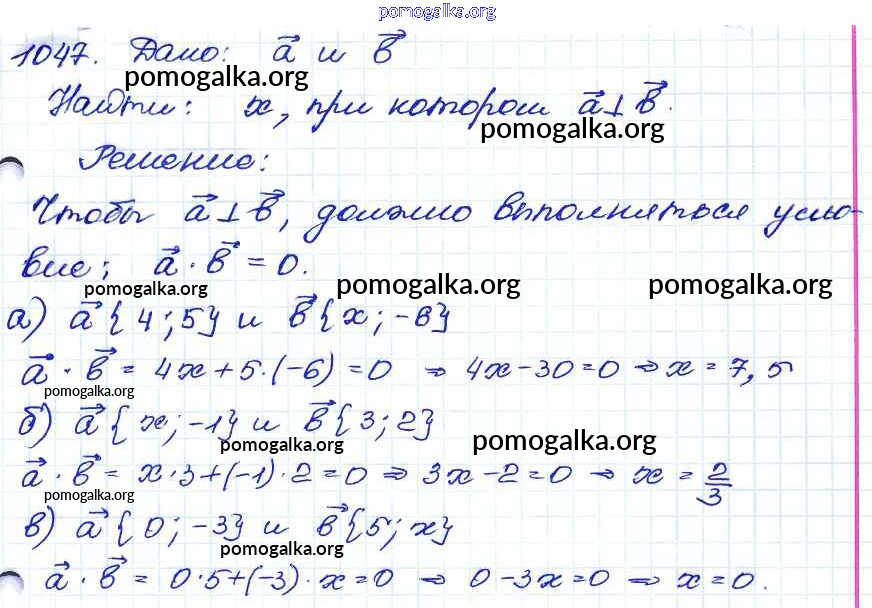 pomogalka.org
1047. Дано: a⃗ и b⃗
pomogalka.org
Найти: x, при котором a⃗ ⊥ b⃗.
pomogalka.org
Решение:
Чтобы a⃗ ⊥ b⃗, должно выполняться усло-
вие: a⃗ · b⃗ = 0.
pomogalka.org pomogalka.org pomogalka.org
а) a⃗ {4; 5} и b⃗ {x; -6}
a⃗ · b⃗ = 4x + 5·(-6) = 0 ⇒ 4x - 30 = 0 ⇒ x = 7,5
pomogalka.org
б) a⃗ {x; -1} и b⃗ {3; 2}
pomogalka.org pomogalka.org
a⃗ · b⃗ = x·3 + (-1)·2 = 0 ⇒ 3x - 2 = 0 ⇒ x = 2/3
pomogalka.org
в) a⃗ {0; -3} и b⃗ {5; x}
pomogalka.org
a⃗ · b⃗ = 0·5 + (-3)·x = 0 ⇒ 0 - 3x = 0 ⇒ x = 0.